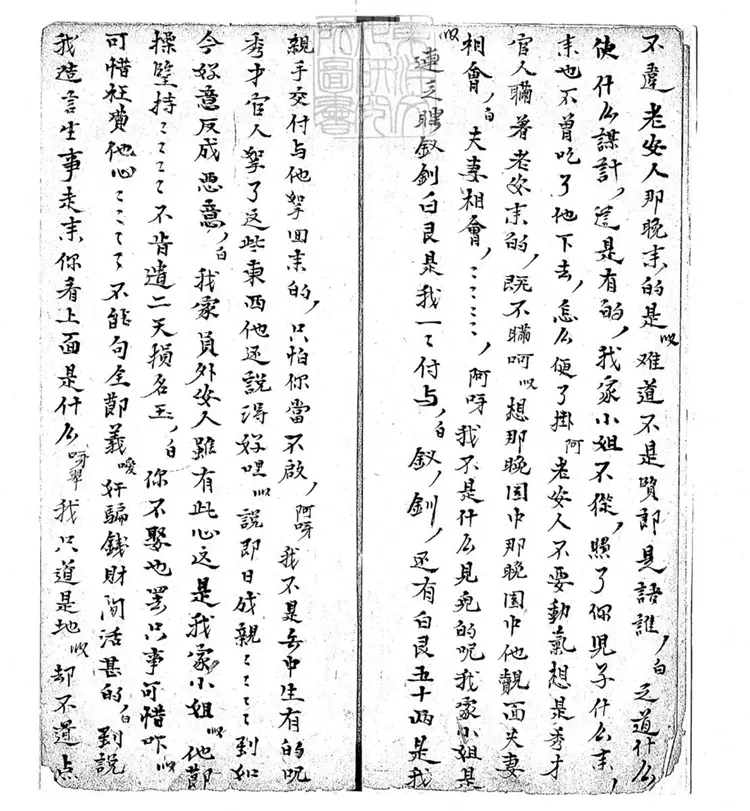 不違老安人那晚来的是唱难道不是賢郎是語誰,白 乏道什么
使什么謀計,這是有的,我家小姐不傑,賺了你児子什么来,
来也不曾吃了他下去,怎么便了掛阿老安人不要動氣想是秀才
官人瞞着老安来的,既不瞞呵 唱 想那晚园中那晚园中他覿面夫妻
相會,白 夫妻相會,ミミミミ,阿呀我不是什么見鬼的呢我家小姐是
唱連文聘釵釧白艮是我一ミ付与,白 釵,釧,还有白艮五十両是我
親手交付与他拏回来的,只怕你當不啟,阿呀我不是去中生有的呢
秀才官人拏了这些東西他还説得好哩 唱 説即日成親ミミミミ到如
今好意反成悪意,白 我家員外安人雖有此心这是我家小姐 唱 他節
操堅持ミミミミ不肯遣二天損名玉,白 你不娶也罢只事可惜咋 唱
可惜枉費他心ミミミミ不能句全節義 噯 奸騙錢財閒活甚的,白 到説
我造言生事走来你看上面是什么呀翠我只道是地 唱 却不道点